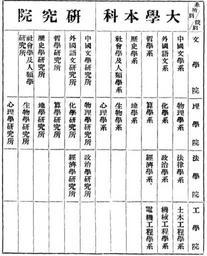 系所別 院別
大學本科
研究院
文學院
中國文學系
外國語文系
哲學系
歷史學系
社會學及人類學系
中國文學研究所
外國語文研究所
哲學研究所
歷史學研究所
社會學及人類學研究所
理學院
物理學系
化學系
算學系
地學系
生物學系
心理學系
物理學研究所
化學研究所
算學研究所
地學研究所
生物學研究所
心理學研究所
法學院
法律學系
政治學系
經濟學系
政治學研究所
經濟學研究所
工學院
土木工程學系
機械工程學系
電機工程學系